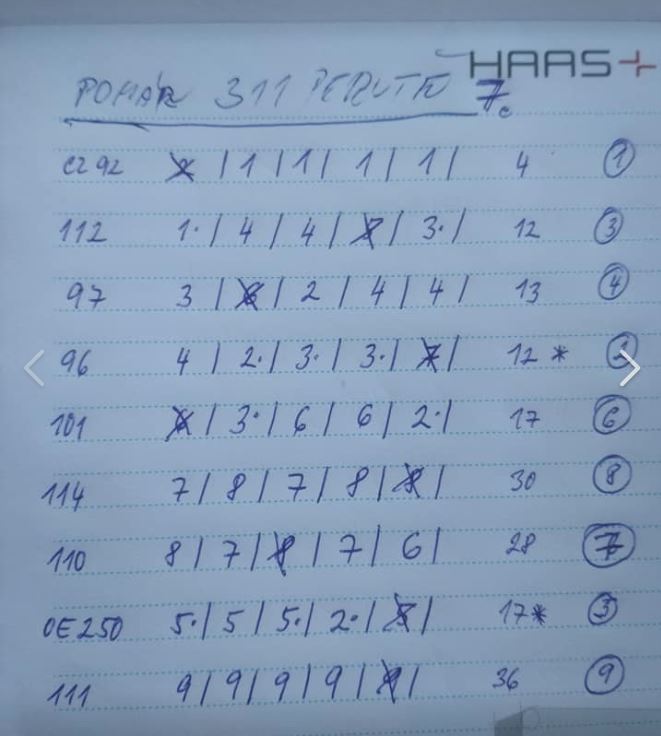 HAAS+
POHÁR 311 PERUTE 7.
CZ 92 | 1 | 1 | 1 | 1 | 4 1
112 1. | 4 | 4 | 7 | 3. | 12 3
97 3 | 6 | 2 | 4 | 4 | 13 4
96 4 | 2. | 3. | 3. | 7 | 12 *
101 | 3. | 6 | 6 | 2. | 17 6
114 7 | 8 | 7 | 8 | 8 | 30 8
110 8 | 7 | 8 | 7 | 6 | 28 7
OE 250 5. | 5 | 5. | 2. | | 17*
111 9 | 9 | 9 | 9 | 9 | 36 9